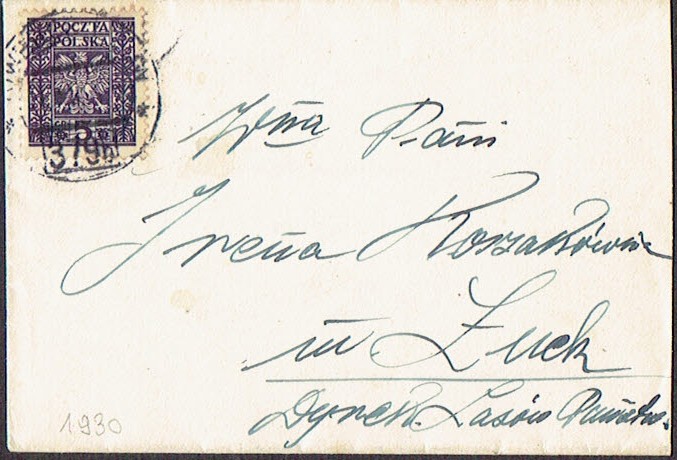 POCZTA
POLSKA
5
379b
Wna Pani
Irena Kozakówna
w Łuck
Dyrek. Lasów Państw.
1930